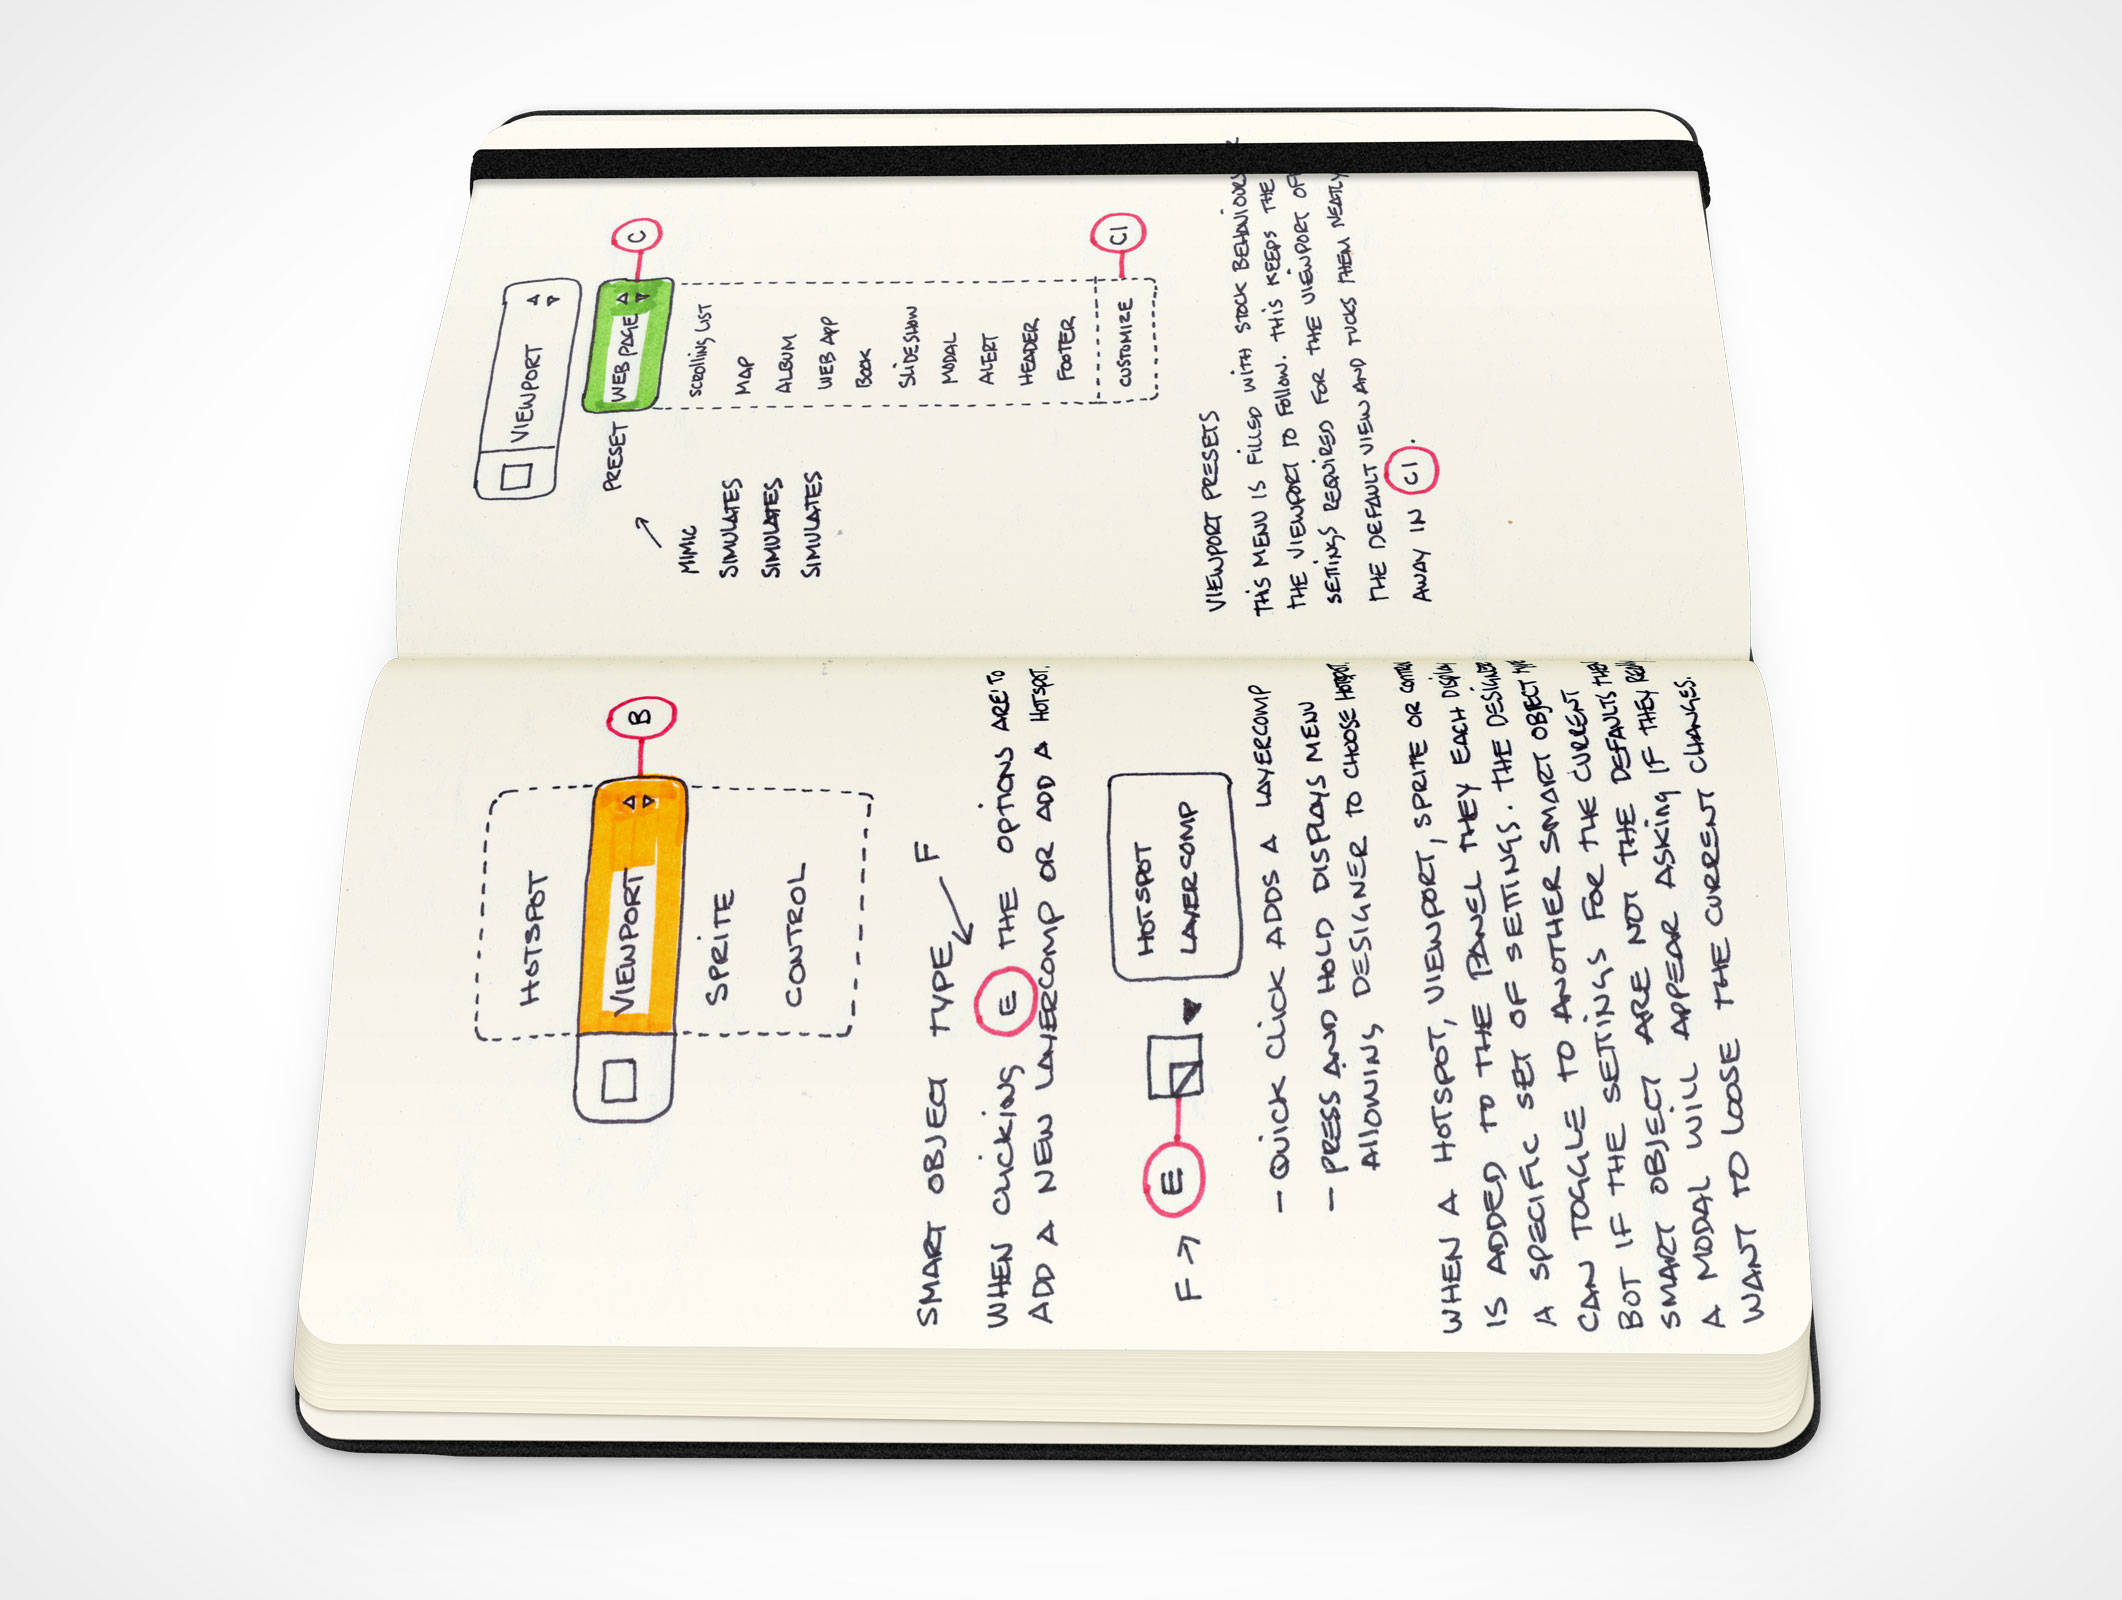 HOTSPOT
VIEWPORT
B
SPRITE
CONTROL
SMART OBJECT TYPE
F
WHEN CLICKING E THE OPTIONS ARE TO
ADD A NEW LAYERCOMP OR ADD A HOTSPOT.
F → E
HOTSPOT
LAYERCOMP
- QUICK CLICK ADDS A LAYERCOMP
- PRESS AND HOLD DISPLAYS MENU
ALLOWING DESIGNER TO CHOOSE HOTSPOT.
WHEN A HOTSPOT, VIEWPORT, SPRITE OR
IS ADDED TO THE PANEL THEY EACH DISPLAY
A SPECIFIC SET OF SETTINGS. THE DESIGNER
CAN TOGGLE TO ANOTHER SMART OBJECT
BOT IF THE SETTINGS FOR THE CURRENT
SMART OBJECT ARE NOT THE DEFAULTS
A MODAL WILL APPEAR ASKING IF THEY
WANT TO LOOSE THE CURRENT CHANGES.
VIEWPORT
PRESET WEB PAGE C
MIMIC SCROLLING LIST
SIMULATES MAP
SIMULATES ALBUM
SIMULATES WEB APP
BOOK
SLIDESHOW
MODAL
ALERT
HEADER
FOOTER
CUSTOMIZE C1
VIEWPORT PRESETS
THIS MENU IS FILLED WITH STOCK BEHAVIOURS
THE VIEWPORT TO FOLLOW. THIS KEEPS THE
SETTINGS REQUIRED FOR THE VIEWPORT OFF
THE DEFAULT VIEW AND TUCKS THEM NEATLY
AWAY IN C1.